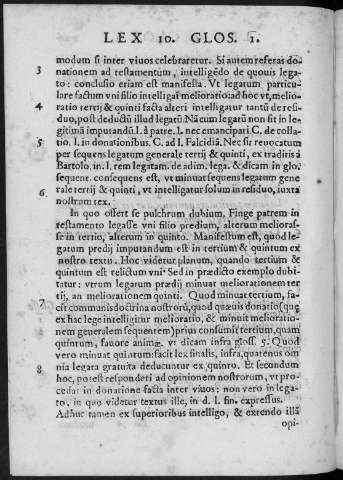 LEX 10. GLOS. 1.
modum si inter viuos celebraretur. Si autem referas do-
3 nationem ad testamentum, intelligẽdo de quouis lega-
to: conclusio etiam est manifesta. Vt legatum particu-
lare factum vni filio intelligat melioratio: ad hoc vt, melio-
4 ratio tertij & quinti facta alteri intelligatur tantũ de resi-
duo, post deductũ illud legatũ. Nã cum legatũ non sit in le-
5 gitimã imputandũ. l. à patre. l. nec emancipari. C. de colla-
tio. l. in donationibus. C. ad l. Falcidiã. Nec sit reuocatum
per sequens legatum generale tertij & quinti, ex traditis à
Bartolo. in. l. rem legatam. de adim. lega. & dicam in glos.
sequent. consequens est, vt minuat sequens legatum gene
6. rale tertij & quinti, vt intelligatur solum in residuo, iuxta
nostrum tex.
In quo offert se pulchrum dubium. Finge patrem in
testamento legasse vni filio predium, alterum meliorass-
se in tertio, alterum in quinto. Manifestum est, quod le-
gatum predij imputandum est in tertium & quintum ex
nostro textu. Hoc videtur planum, quando tertium &
quintum est relictum vni. Sed in prædicto exemplo dubi-
tatur: vtrum legatum prædij minuat meliorationem ter
tij, an meliorationem quinti. Quod minuat tertium, fa-
7. cit communis doctrina nostrorũ, quod quæuis donatio (quę
ex hac lege intelligitur melioratio, & minuit melioratio-
nem generalem sequentem) prius consumit tertium, quam
quintum, fauore animæ. vt dicam infra gloss. 5. Quod
vero minuat quintum: facit lex finalis, infra, quatenus om
nia legata gratuita deducuntur ex quinto. Et secundum
8. hoc, potest responderi ad opinionem nostrorum, vt pro-
cedat in donatione facta inter viuos: non vero in lega-
to, in quo videtur textus ille, in d. l. fin. expressus.
Adhuc tamen ex superioribus intelligo, & extendo illã
opi-